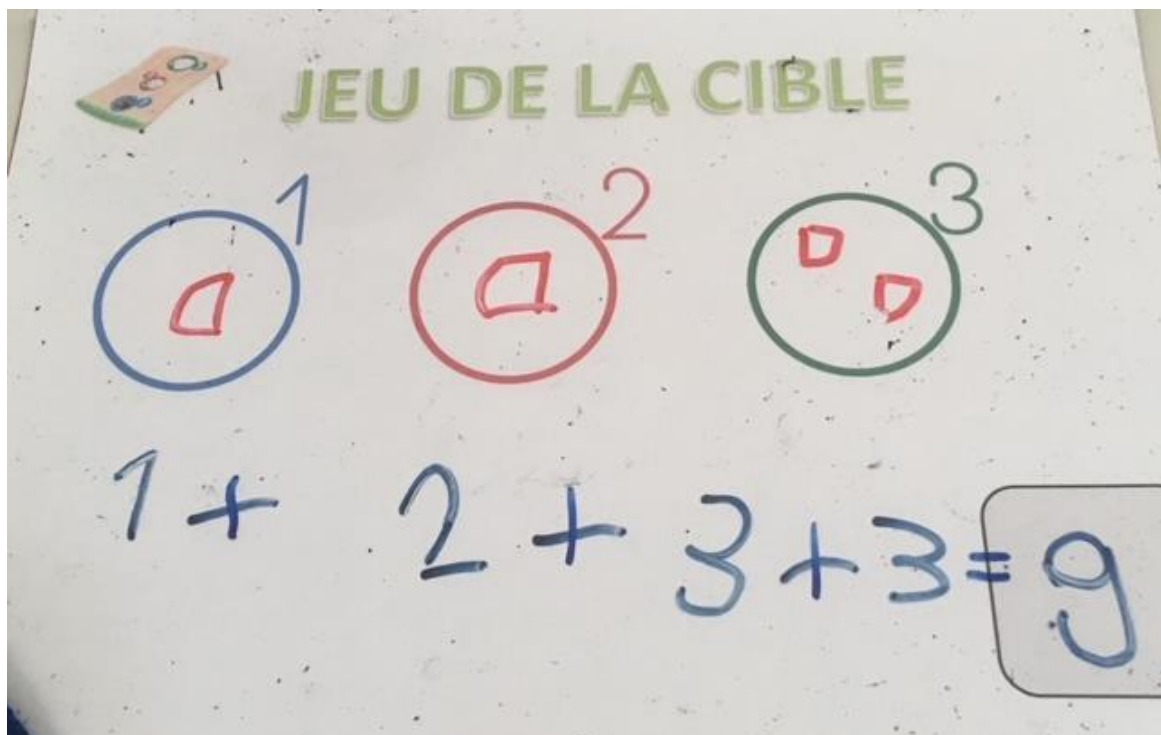 JEU DE LA CIBLE
1 2 3
1 + 2 + 3 + 3 = 9